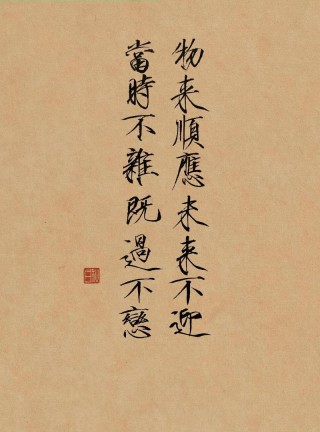 物来順應未来不迎
當時不雜既過不戀